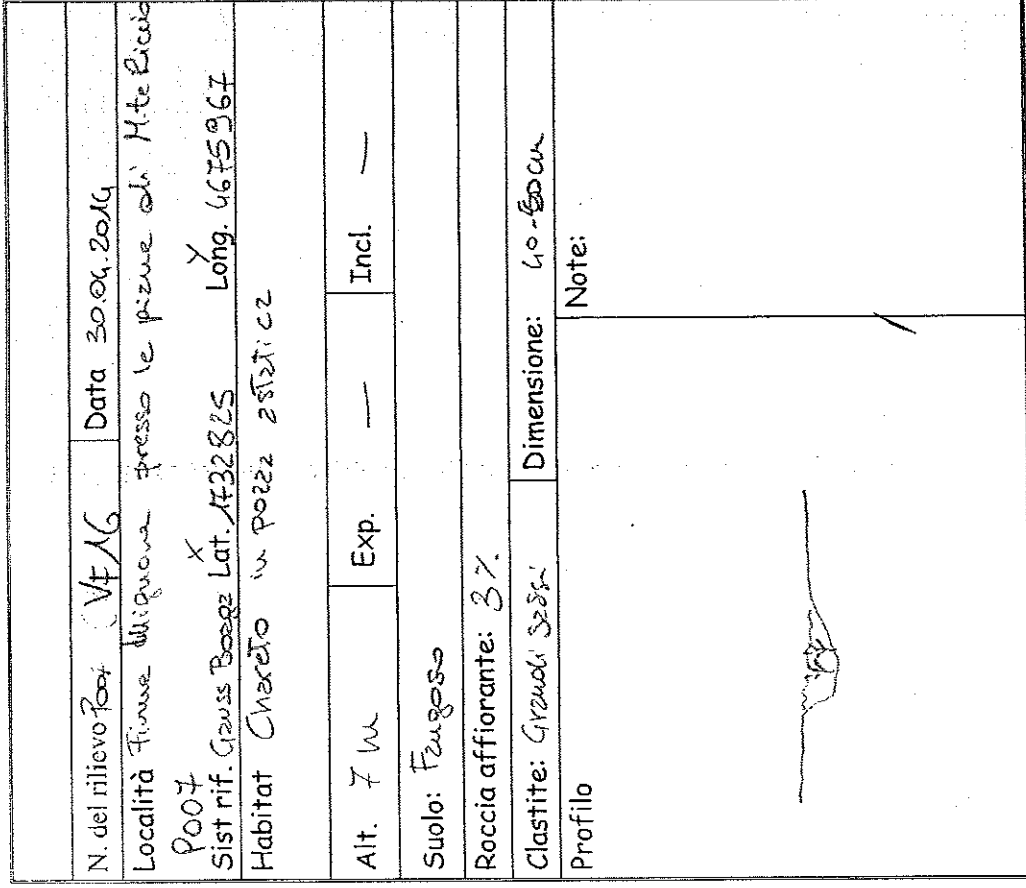 N. del rilievo P007 (VF16 Data 30.04.2014
Località Fiume Mignone presso le piane di M.te Riccio
P007
Sist rif. Gauss Boaga Lat. X 1732825 Long. Y 4675967
Habitat Chareto in pozza astatica
Alt. 7 m Exp. — Incl. —
Suolo: Fangoso
Roccia affiorante: 3%
Clastite: Grandi sassi Dimensione: 40-50cm
Profilo Note: